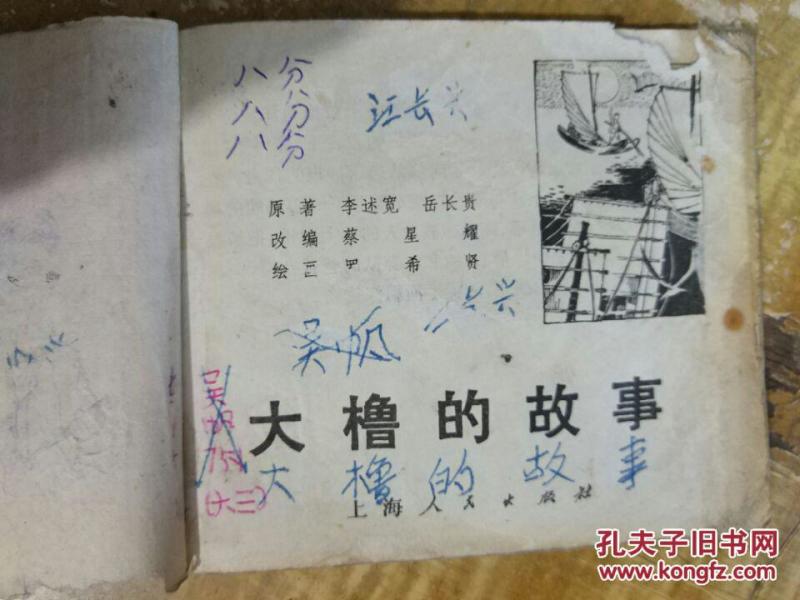 八分
八分
八分
江长兴
原著 李述宽 岳长贵
改编 蔡星耀
绘画 罗希贤
长兴
吴
大橹的故事
吴
大橹的故事
(六三)
上海人民出版社
孔夫子旧书网
www.kongfz.com